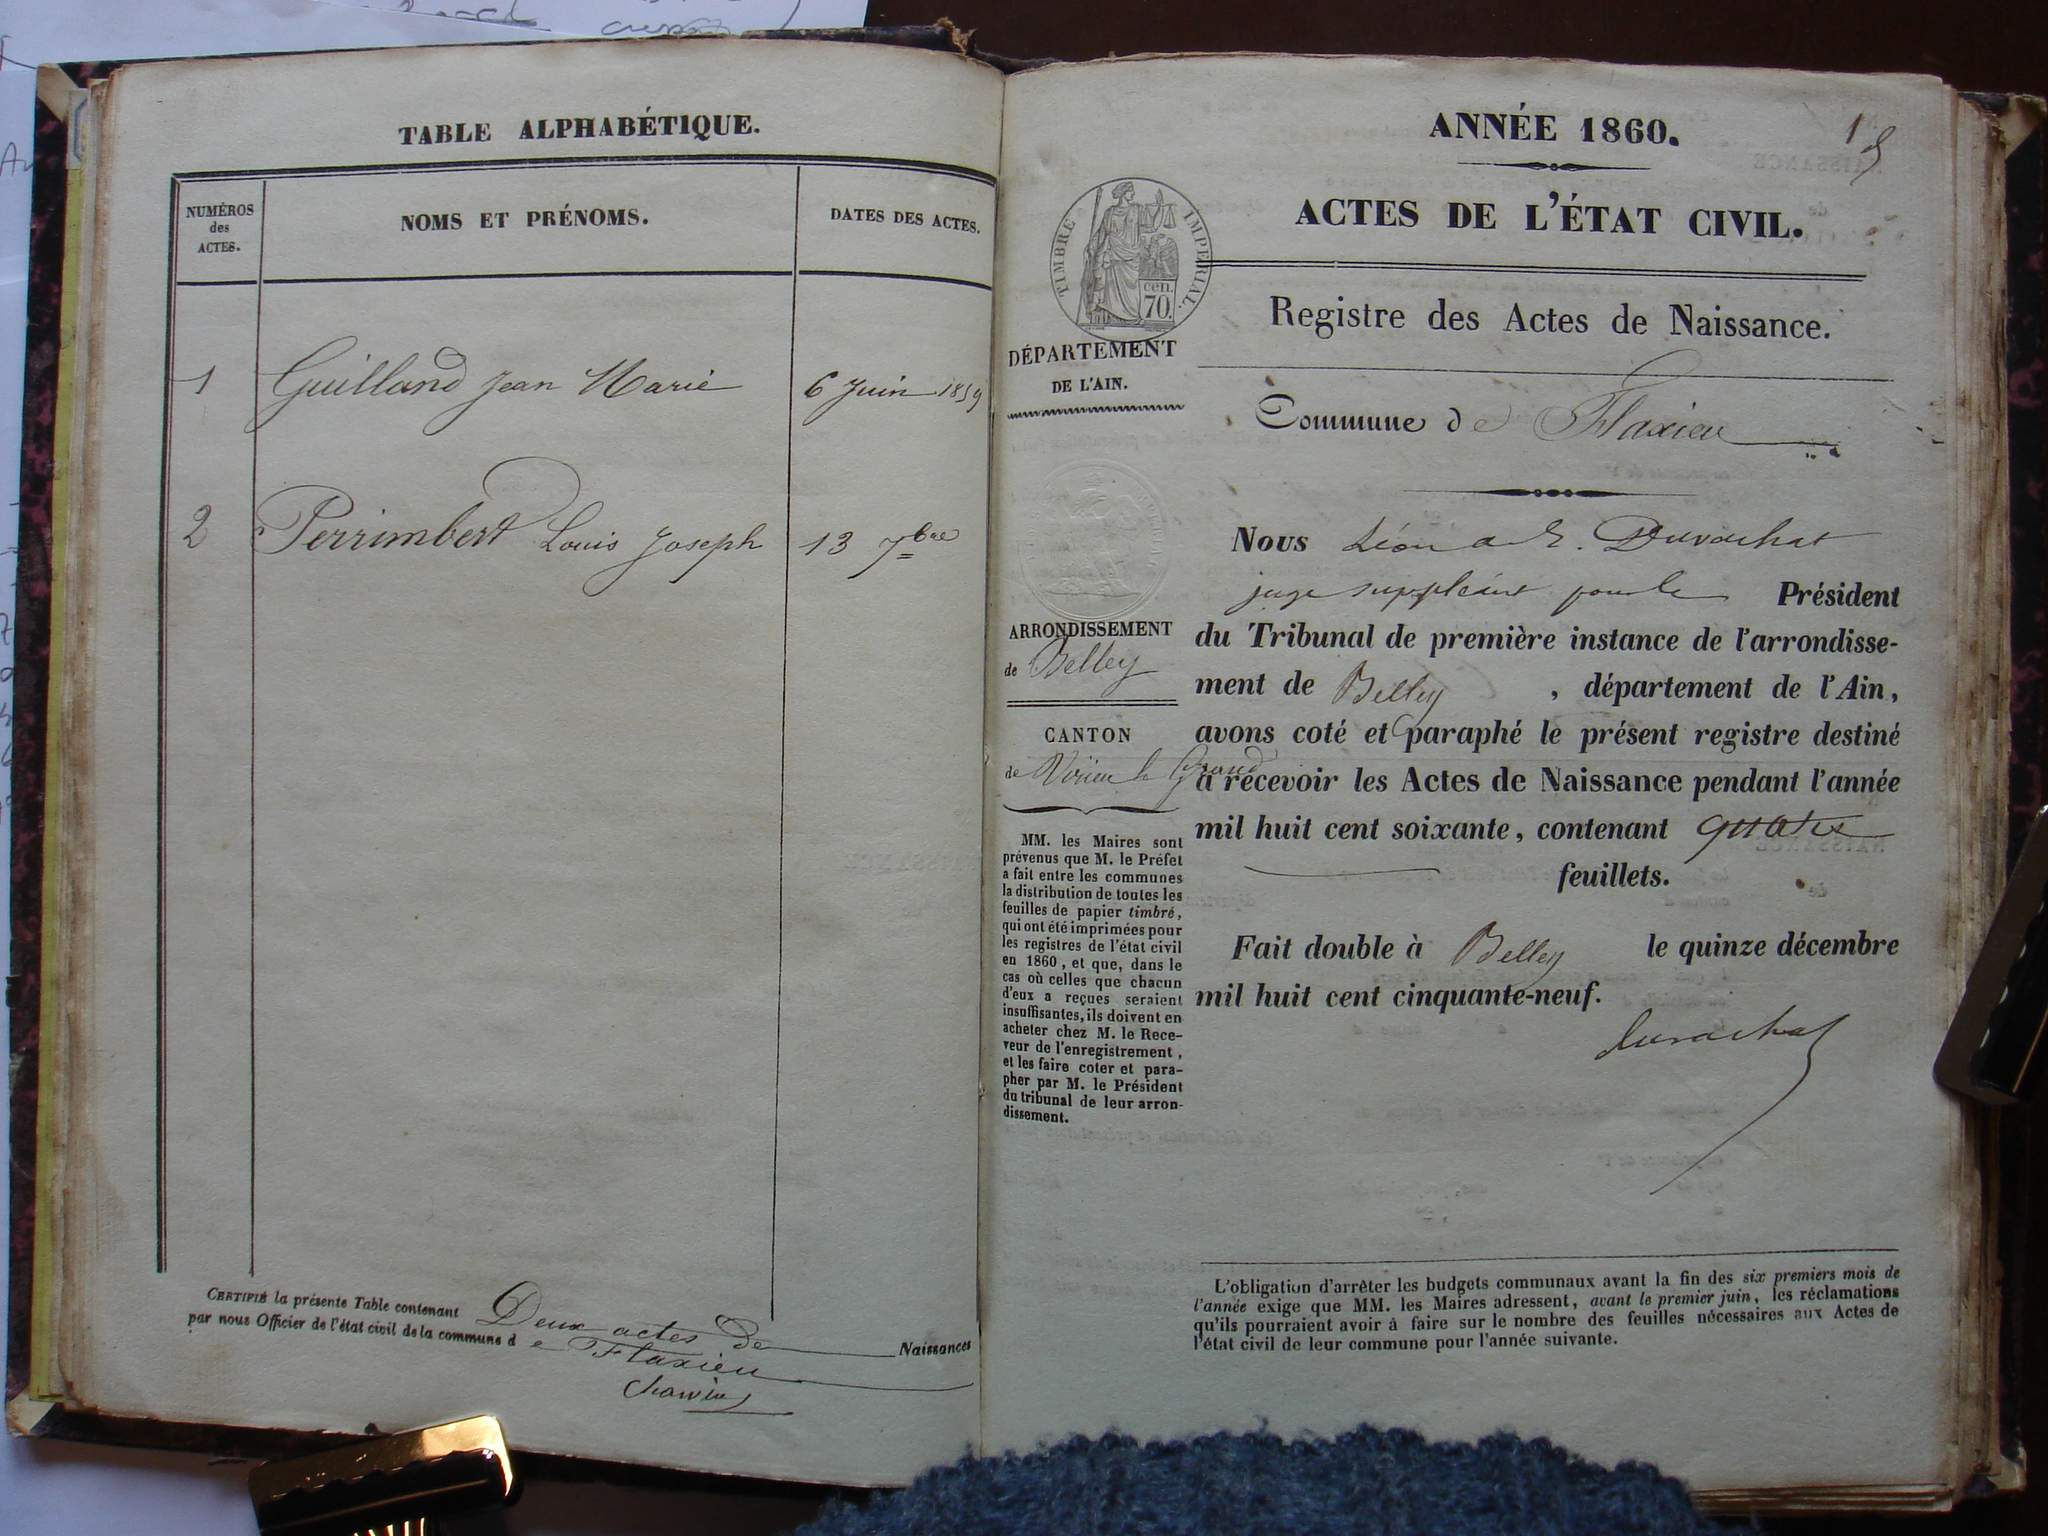 TABLE ALPHABÉTIQUE.
NUMÉROS
des
ACTES.
NOMS ET PRÉNOMS.
DATES DES ACTES.
1 Guilland Jean Marie 6 Juin 1859
2 Perrimbert Louis Joseph 13 7bre
CERTIFIÉ la présente Table contenant Deux actes de Naissances
par nous Officier de l'état civil de la commune d e Flaxieu
ANNÉE 1860.
ACTES DE L'ÉTAT CIVIL.
TIMBRE IMPERIAL.
cen.
70.
Registre des Actes de Naissance.
DÉPARTEMENT
DE L'AIN.
Commune de Flaxieu
ARRONDISSEMENT
de Belley
CANTON
de Virieu le Grand
MM. les Maires sont
prévenus que M. le Préfet
a fait entre les communes
la distribution de toutes les
feuilles de papier timbré,
qui ont été imprimées pour
les registres de l'état civil
en 1860, et que, dans le
cas où celles que chacun
d'eux a reçues seraient
insuffisantes, ils doivent en
acheter chez M. le Rece-
veur de l'enregistrement,
et les faire coter et para-
pher par M. le Président
du tribunal de leur arron-
dissement.
Nous Léon Duvachat
juge suppléant pour le Président
du Tribunal de première instance de l'arrondisse-
ment de Belley, département de l'Ain,
avons coté et paraphé le présent registre destiné
à recevoir les Actes de Naissance pendant l'année
mil huit cent soixante, contenant quatre
feuillets.
Fait double à Belley le quinze décembre
mil huit cent cinquante-neuf.
Duvachat
L'obligation d'arrêter les budgets communaux avant la fin des six premiers mois de
l'année exige que MM. les Maires adressent, avant le premier juin, les réclamations
qu'ils pourraient avoir à faire sur le nombre des feuilles nécessaires aux Actes de
l'état civil de leur commune pour l'année suivante.